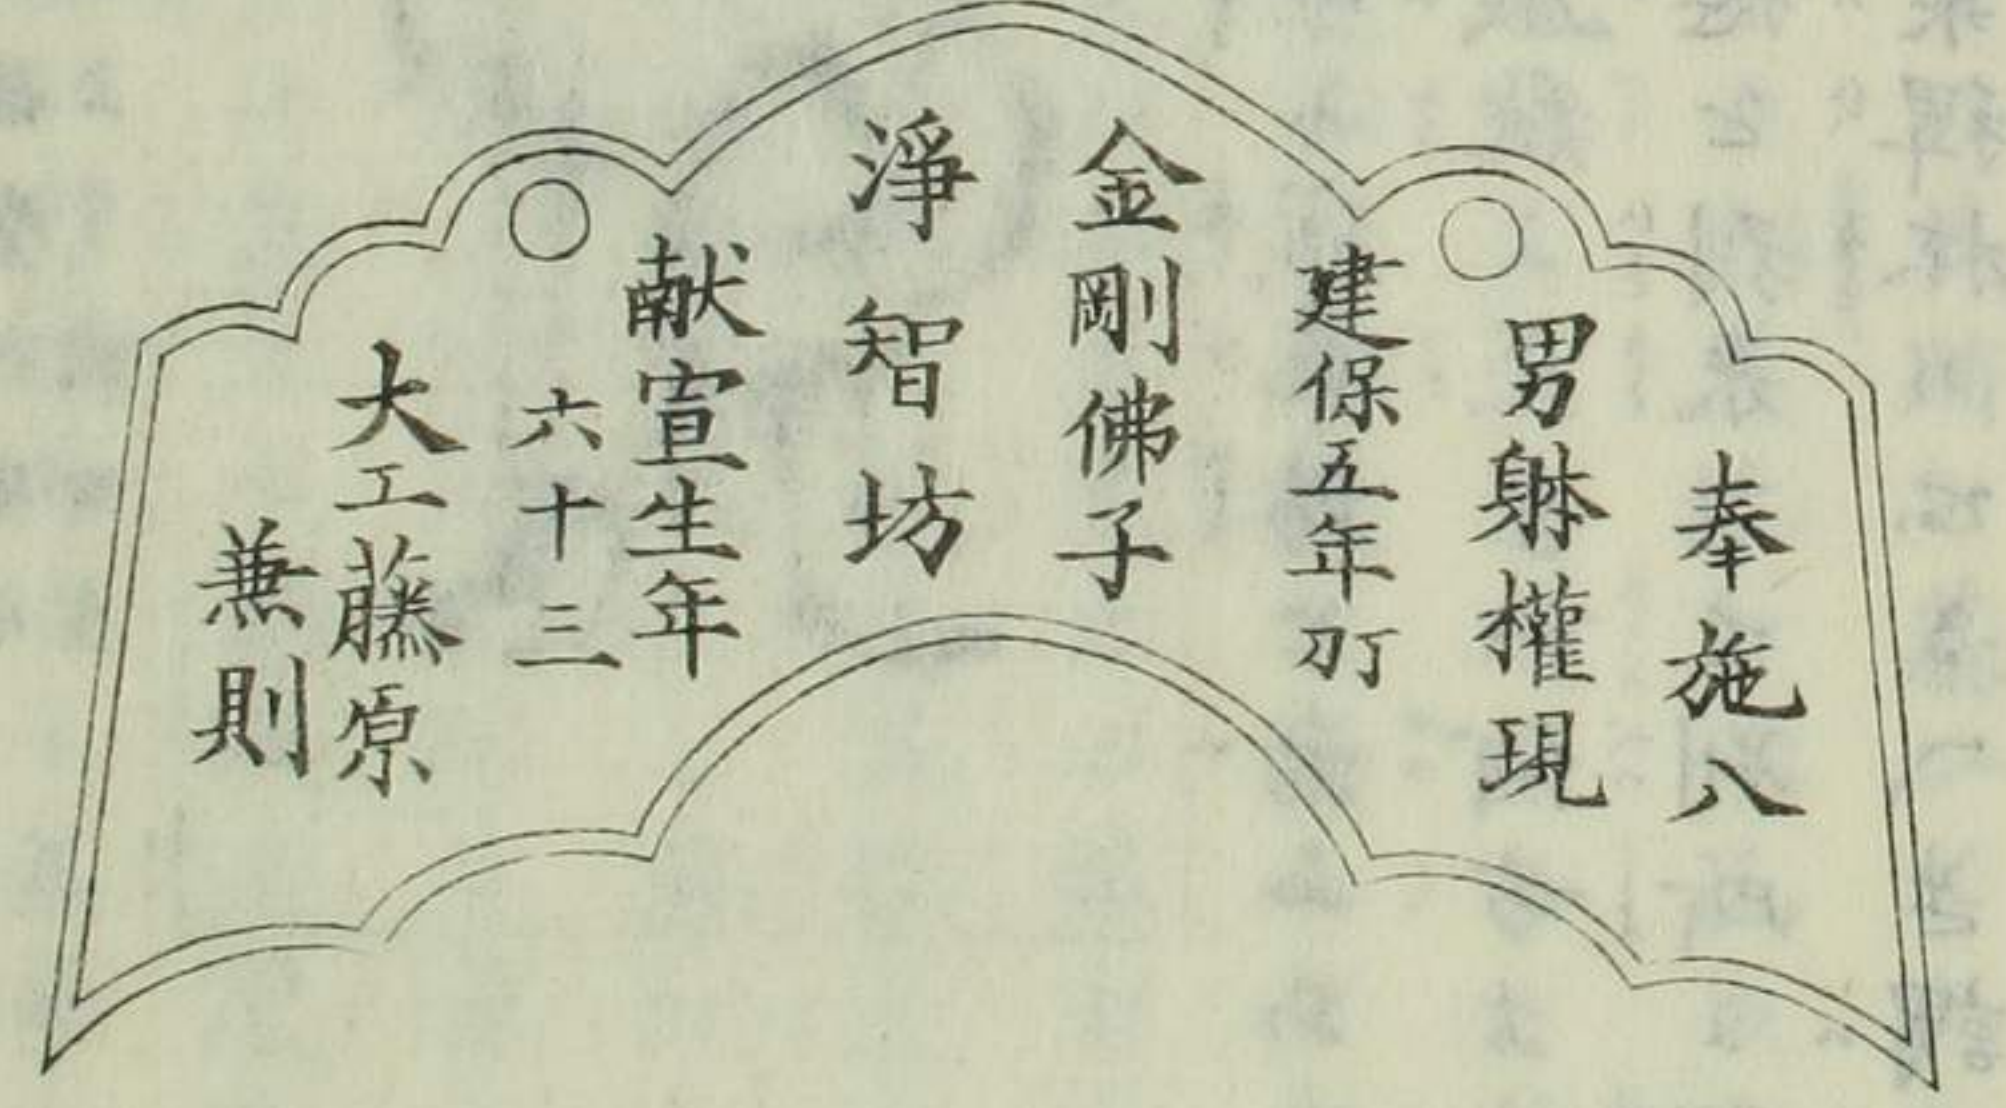 奉施八
男躰權現
建保五年丁丑
金剛佛子
淨智坊
献宣生年
六十三
大工藤原
兼則